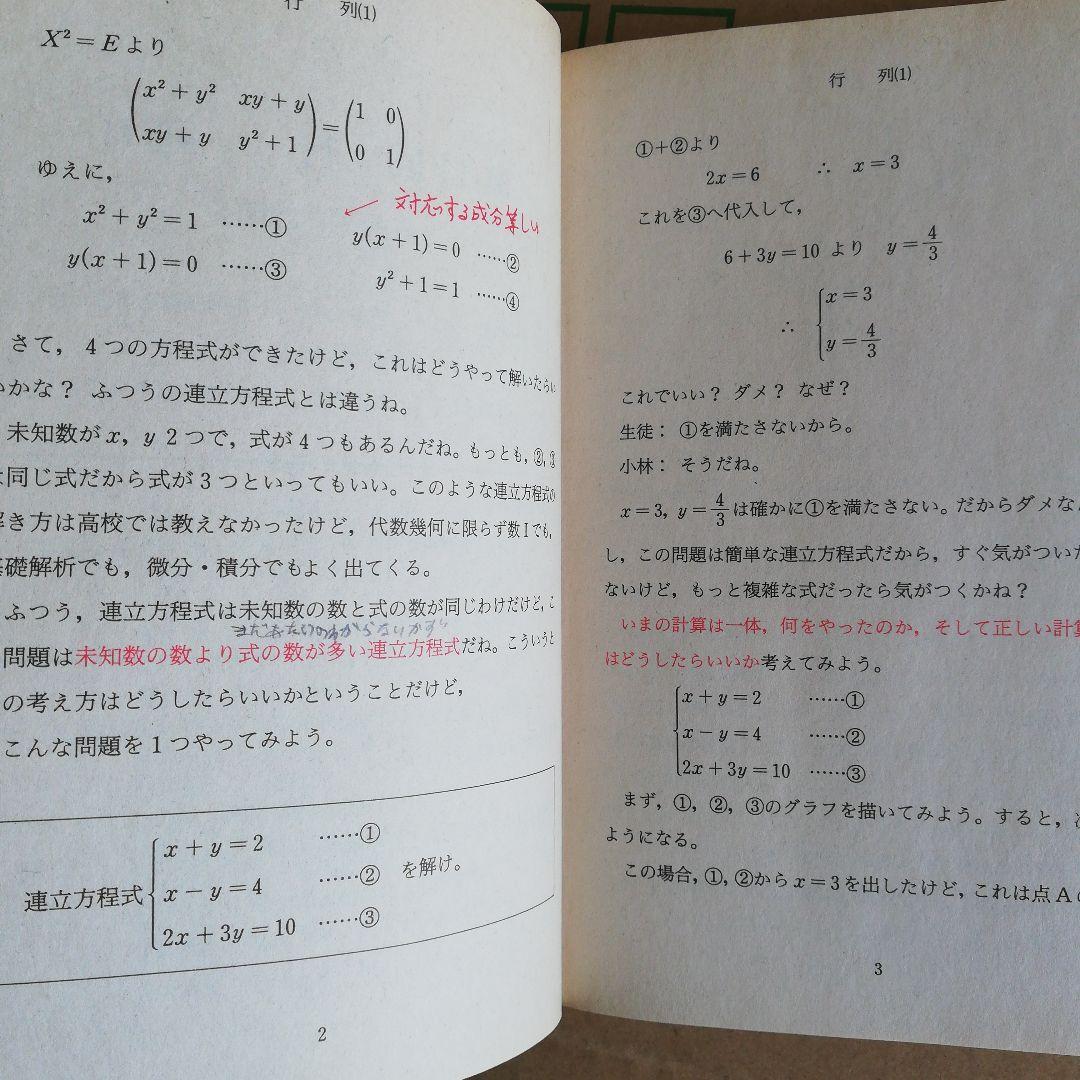 行 列(1)
X² = E より
(x² + y² xy + y
xy + y y² + 1) = (1 0
0 1)
ゆえに，
対応する成分等しい
x² + y² = 1 ……① y(x + 1) = 0 ……②
y(x + 1) = 0 ……③ y² + 1 = 1 ……④
さて，4つの方程式ができたけど，これはどうやって解いたらい
いかな？ ふつうの連立方程式とは違うね。
未知数がx，y 2つで，式が4つもあるんだね。もっとも，②，③
は同じ式だから式が3つといってもいい。このような連立方程式の
解き方は高校では教えなかったけど，代数幾何に限らず数Ⅰでも，
基礎解析でも，微分・積分でもよく出てくる。
ふつう，連立方程式は未知数の数と式の数が同じわけだけど，こ
問題は未知数の数より式の数が多い連立方程式だね。こういうと
の考え方はどうしたらいいかということだけど，
こんな問題を1つやってみよう。
x + y = 2 ……①
連立方程式 x − y = 4 ……② を解け。
2x + 3y = 10 ……③
2
行 列(1)
①+②より
2x = 6 ∴ x = 3
これを③へ代入して，
6 + 3y = 10 より y = 4/3
∴ {x = 3
y = 4/3
これでいい？ ダメ？ なぜ？
生徒： ①を満たさないから。
小林： そうだね。
x = 3，y = 4/3 は確かに①を満たさない。だからダメな
し，この問題は簡単な連立方程式だから，すぐ気がついた
ないけど，もっと複雑な式だったら気がつくかね？
いまの計算は一体，何をやったのか，そして正しい計算
はどうしたらいいか考えてみよう。
x + y = 2 ……①
x − y = 4 ……②
2x + 3y = 10 ……③
まず，①，②，③のグラフを描いてみよう。すると，
ようになる。
この場合，①，②からx = 3を出したけど，これは点Aの
3